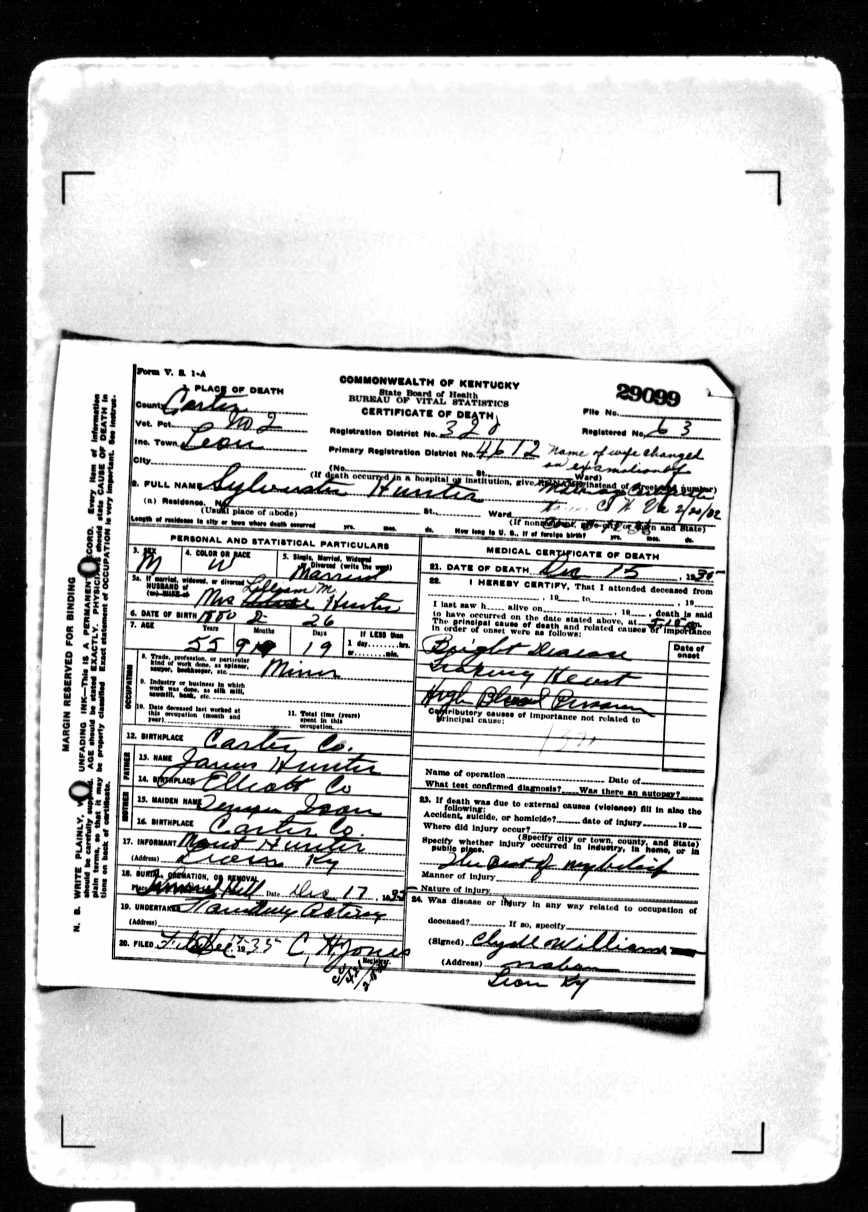 Form V. S. 1-A
COMMONWEALTH OF KENTUCKY
State Board of Health
BUREAU OF VITAL STATISTICS
CERTIFICATE OF DEATH
29099
File No.
Registered No. 63
1. PLACE OF DEATH
County Carter
Vot. Pct. No 2
Inc. Town Leon
City
Registration District No. 320
Primary Registration District No. 4612
Name of wife changed
(No. St. Ward)
(If death occurred in a hospital or institution, give its NAME instead of street and number)
2. FULL NAME Sylvester Hunter
(a) Residence. No. St. Ward
(Usual place of abode) (If nonresident, give city or town and State)
Length of residence in city or town where death occurred yrs. mos. ds. How long in U. S., if of foreign birth? yrs. mos. ds.
PERSONAL AND STATISTICAL PARTICULARS
3. SEX M
4. COLOR OR RACE W
5. Single, Married, Widowed or Divorced (write the word) Married
5a. If married, widowed, or divorced
HUSBAND of
(or) WIFE of Mrs Hunter
6. DATE OF BIRTH 1880 2 26
7. AGE Years Months Days If LESS than
55 9 19 1 day hrs. or min.
OCCUPATION
8. Trade, profession, or particular kind of work done, as spinner, sawyer, bookkeeper, etc. Miner
9. Industry or business in which work was done, as silk mill, sawmill, bank, etc.
10. Date deceased last worked at this occupation (month and year)
11. Total time (years) spent in this occupation
12. BIRTHPLACE Carter Co.
FATHER
13. NAME James Hunter
14. BIRTHPLACE Elliott Co
MOTHER
15. MAIDEN NAME Ison
16. BIRTHPLACE Carter Co.
17. INFORMANT Hunter
(Address) Ky
18. BURIAL, CREMATION, OR REMOVAL
Place Hill Date Dec 17, 1935
19. UNDERTAKER
(Address)
20. FILED Dec 35 C. H. Jones
Registrar.
MEDICAL CERTIFICATE OF DEATH
21. DATE OF DEATH Dec 15, 1935
22. I HEREBY CERTIFY, That I attended deceased from
, 19 to , 19
I last saw h alive on , 19 , death is said
to have occurred on the date stated above, at m.
The principal cause of death and related causes of importance
in order of onset were as follows:
Date of onset
Bright Disease
Leaking Heart
High Blood Pressure
Contributory causes of importance not related to
principal cause:
Name of operation Date of
What test confirmed diagnosis? Was there an autopsy?
23. If death was due to external causes (violence) fill in also the following:
Accident, suicide, or homicide? date of injury 19
Where did injury occur?
(Specify city or town, county, and State)
Specify whether injury occurred in industry, in home, or in public place.
The best of my belief
Manner of injury
Nature of injury
24. Was disease or injury in any way related to occupation of
deceased? If so, specify
(Signed) Clyde Williams
(Address)
Leon Ky
MARGIN RESERVED FOR BINDING
N. B. WRITE PLAINLY, UNFADING INK—This is a PERMANENT RECORD. Every item of information
should be carefully supplied. AGE should be stated EXACTLY. PHYSICIANS should state CAUSE OF DEATH in
plain terms, so that it may be properly classified. Exact statement of OCCUPATION is very important. See instruc-
tions on back of certificate.